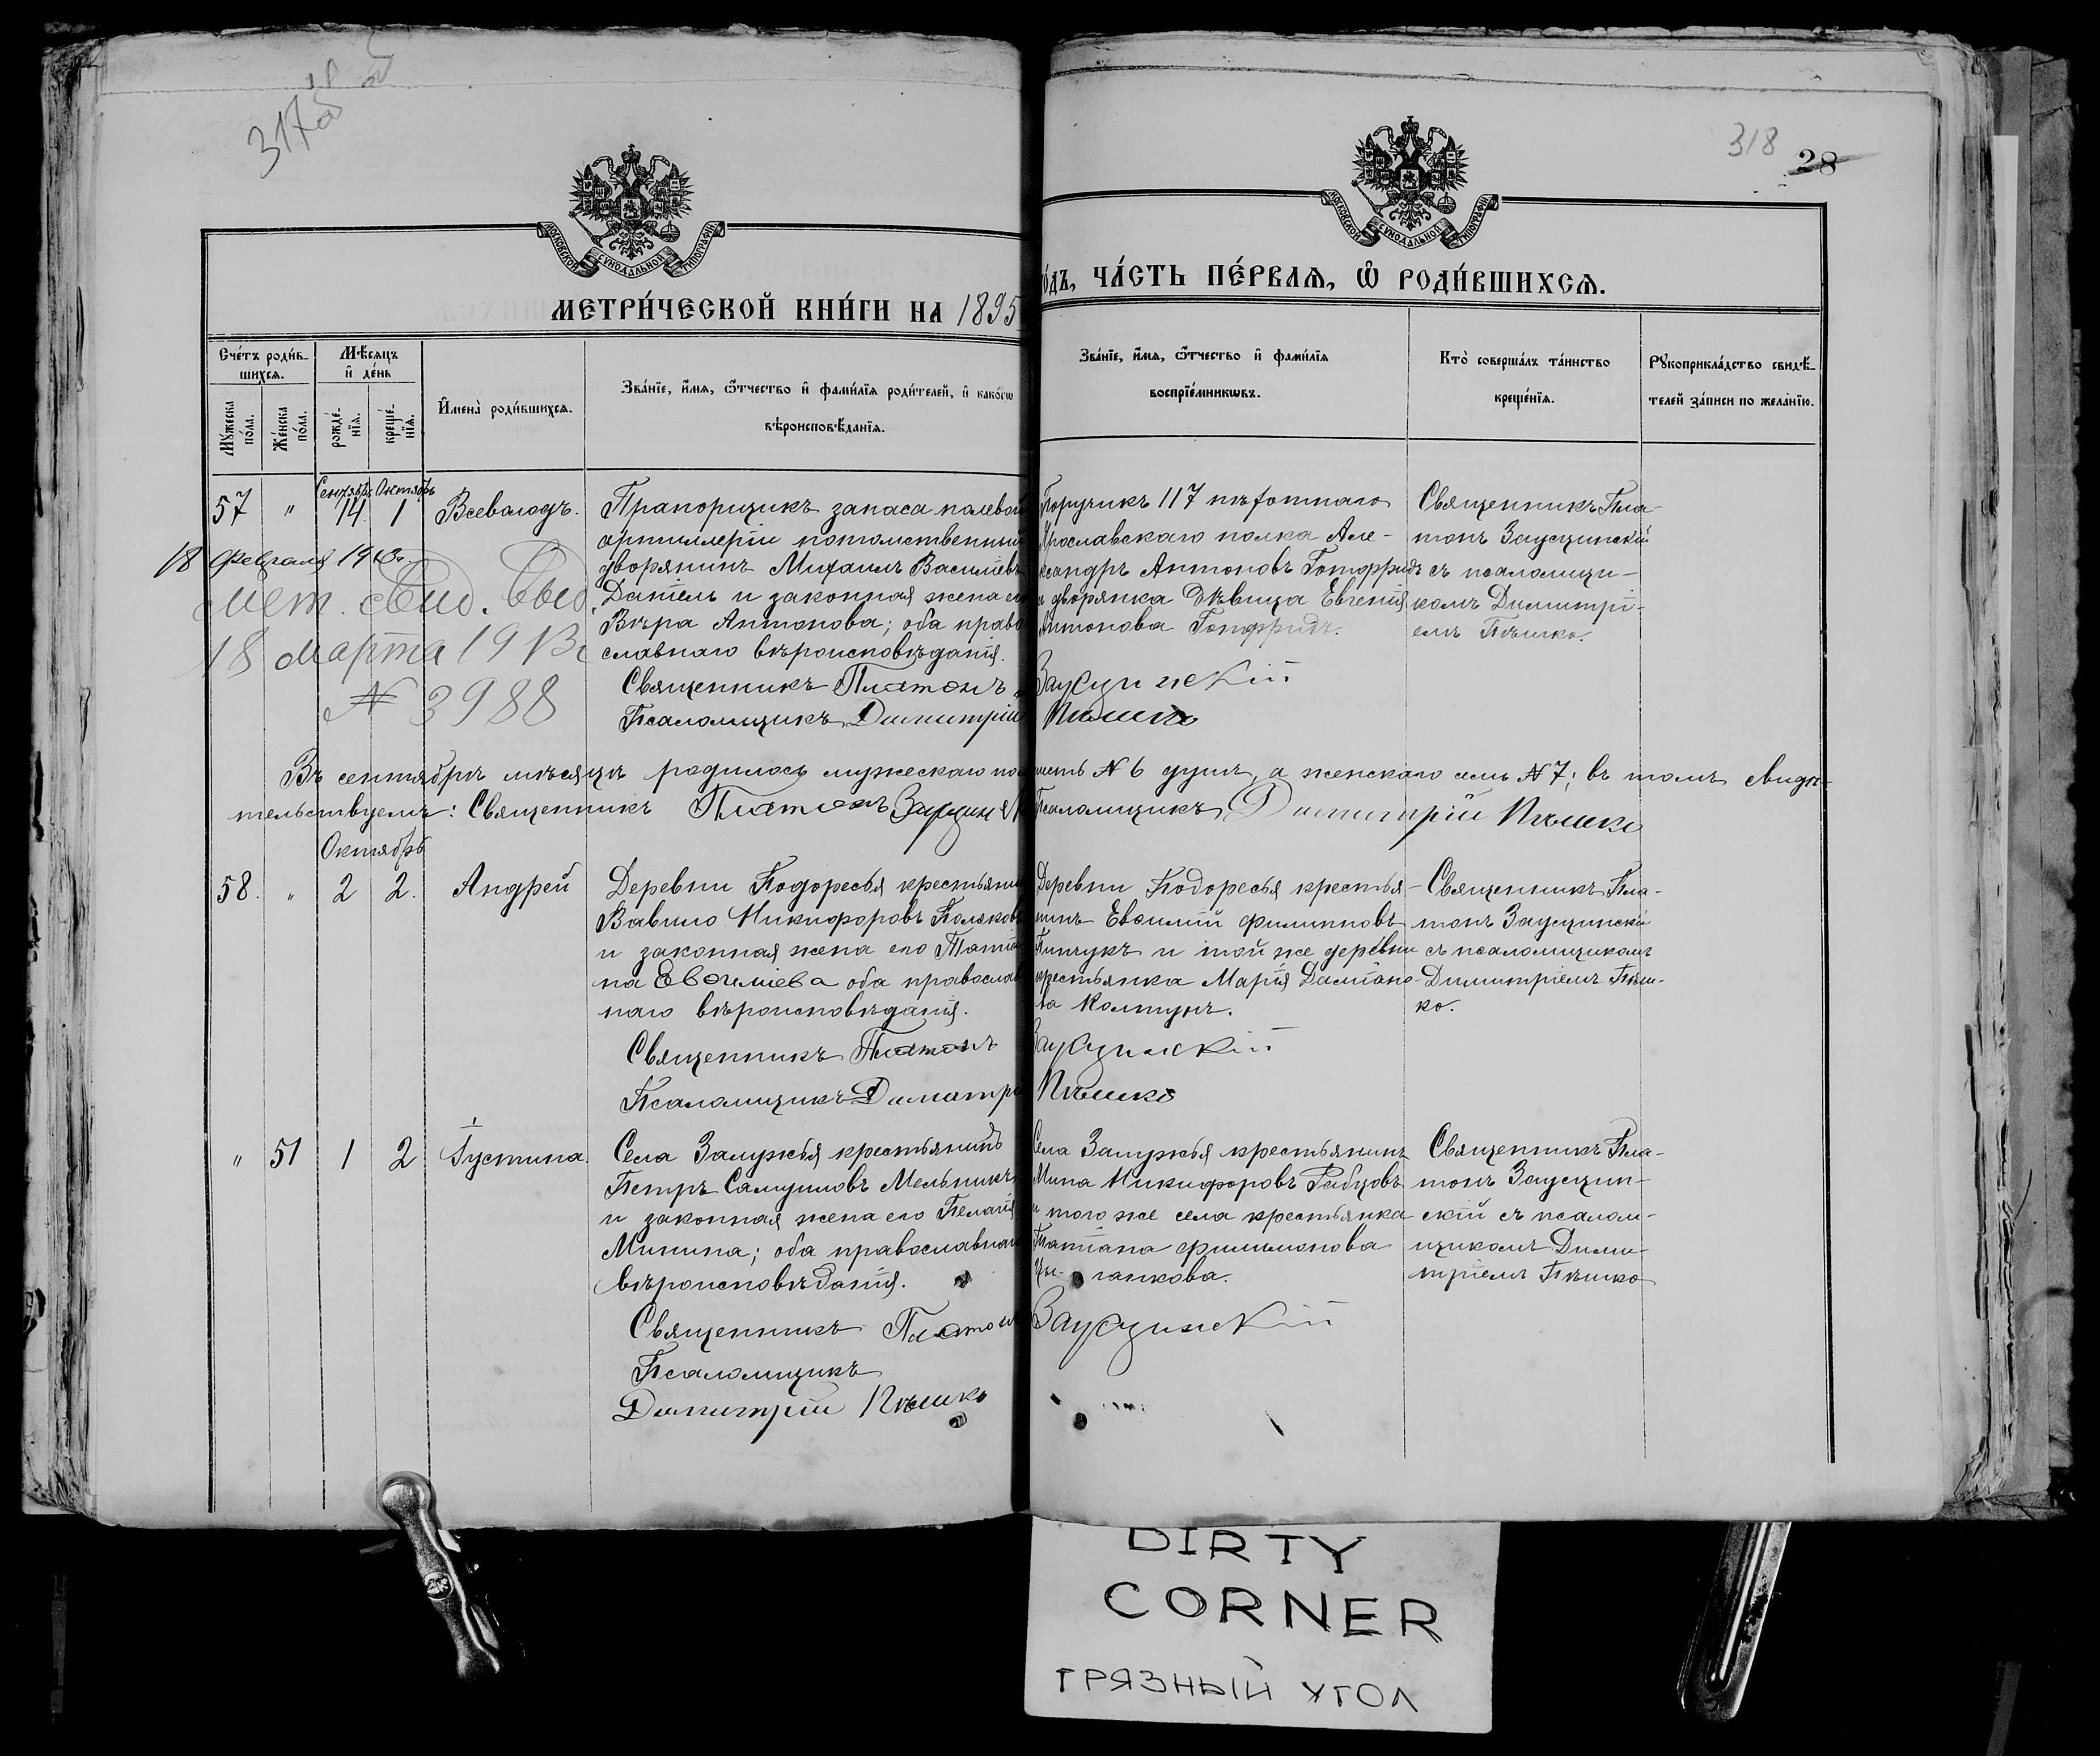 317об
318
28
МОСКОВСКОЙ СѴНОДАЛЬНОЙ ТИПОГРАФІИ
МОСКОВСКОЙ СѴНОДАЛЬНОЙ ТИПОГРАФІИ
МЕТРИ́ЧЕСКОЙ КНИ́ГИ НА 1895
о́дъ, ЧА́СТЬ ПЕ́РВАѦ, Ѡ҆ РОДИ́ВШИХСѦ.
Сче́тъ роди́в-
шихсѧ.
Мꙋ́жеска по́ла.
Же́нска по́ла.
Мѣ́сѧцъ
и҆ де́нь
рожде́-
нїѧ.
креще́-
нїѧ.
И҆мена̀ роди́вшихсѧ.
Зва́нїе, и҆́мѧ, ѻ҆́тчество и҆ фами́лїѧ роди́телей, и҆ како́гѡ
вѣроисповѣ́данїѧ.
Зва́нїе, и҆́мѧ, ѻ҆́тчество и҆ фами́лїѧ
воспрїе́мникѡвъ.
Кто̀ соверша́лъ та́инство
креще́нїѧ.
Рꙋкоприкла́дство свидѣ́-
телей за́писи по жела́нїю.
Сентябрь Октябрь
57 " 14 1 Всеволодъ.
Прапорщикъ запаса полевой
артиллеріи потомственный
дворянинъ Михаилъ Василіевъ
Даніелъ и законная жена его
Вѣра Антонова; оба право-
славнаго вѣроисповѣданія.
Священникъ Платонъ
Псаломщикъ Димитрій
18 февраля 1913г.
Мет. свид. выд.
18 марта 1913г
№ 3988
Поручикъ 117 пѣхотнаго
Ярославскаго полка Але-
ксандръ Антоновъ Готфридъ
и дворянка дѣвица Евгенія
Антонова Готфридъ.
Заусцинскій
Пѣшко
Священникъ Пла-
тонъ Заусцинскій
съ псаломщи-
комъ Димитрі-
емъ Пѣшко.
Въ сентябрѣ мѣсяцѣ родилось мужескаго пол шесть № 6 душъ, а женскаго семь № 7; въ томъ свидѣ-
тельствуемъ: Священникъ Платонъ Заусцинск Псаломщикъ Димитрій Пѣшко
Октябрь
58. " 2 2. Андрей
Деревни Подоресья крестьянин
Вавило Никифоровъ Поляковъ
и законная жена его Татіа
на Евѳиміева оба православ
наго вѣроисповѣданія.
Священникъ Платонъ
Псаломщикъ Димитрі
Деревни Подоресья крестья-
нинъ Евѳимій Филипповъ
Пинчукъ и той же деревни
крестьянка Марія Даміано-
ва Колтунъ.
Заусцинскій
Пѣшко
Священникъ Пла-
тонъ Заусцинскій
съ псаломщикомъ
Димитріемъ Пѣш-
ко.
" 51 1 2 Іустина.
Села Залужья крестьянинъ
Петръ Самуиловъ Мельникъ
и законная жена его Пелагія
Минина; оба православнаг
вѣроисповѣданія.
Священникъ Платон
Псаломщикъ
Димитрій Пѣшко
Села Залужья крестьянинъ
Мина Никифоровъ Рабцовъ
и того же села крестьянка
Татіана Филимонова
Цы- ганкова.
Заусцинскій
Священникъ Пла-
тонъ Заусцин-
скій съ псалом-
щикомъ Дими-
тріемъ Пѣшко
DIRTY
CORNER
ГРЯЗНЫЙ УГОЛ